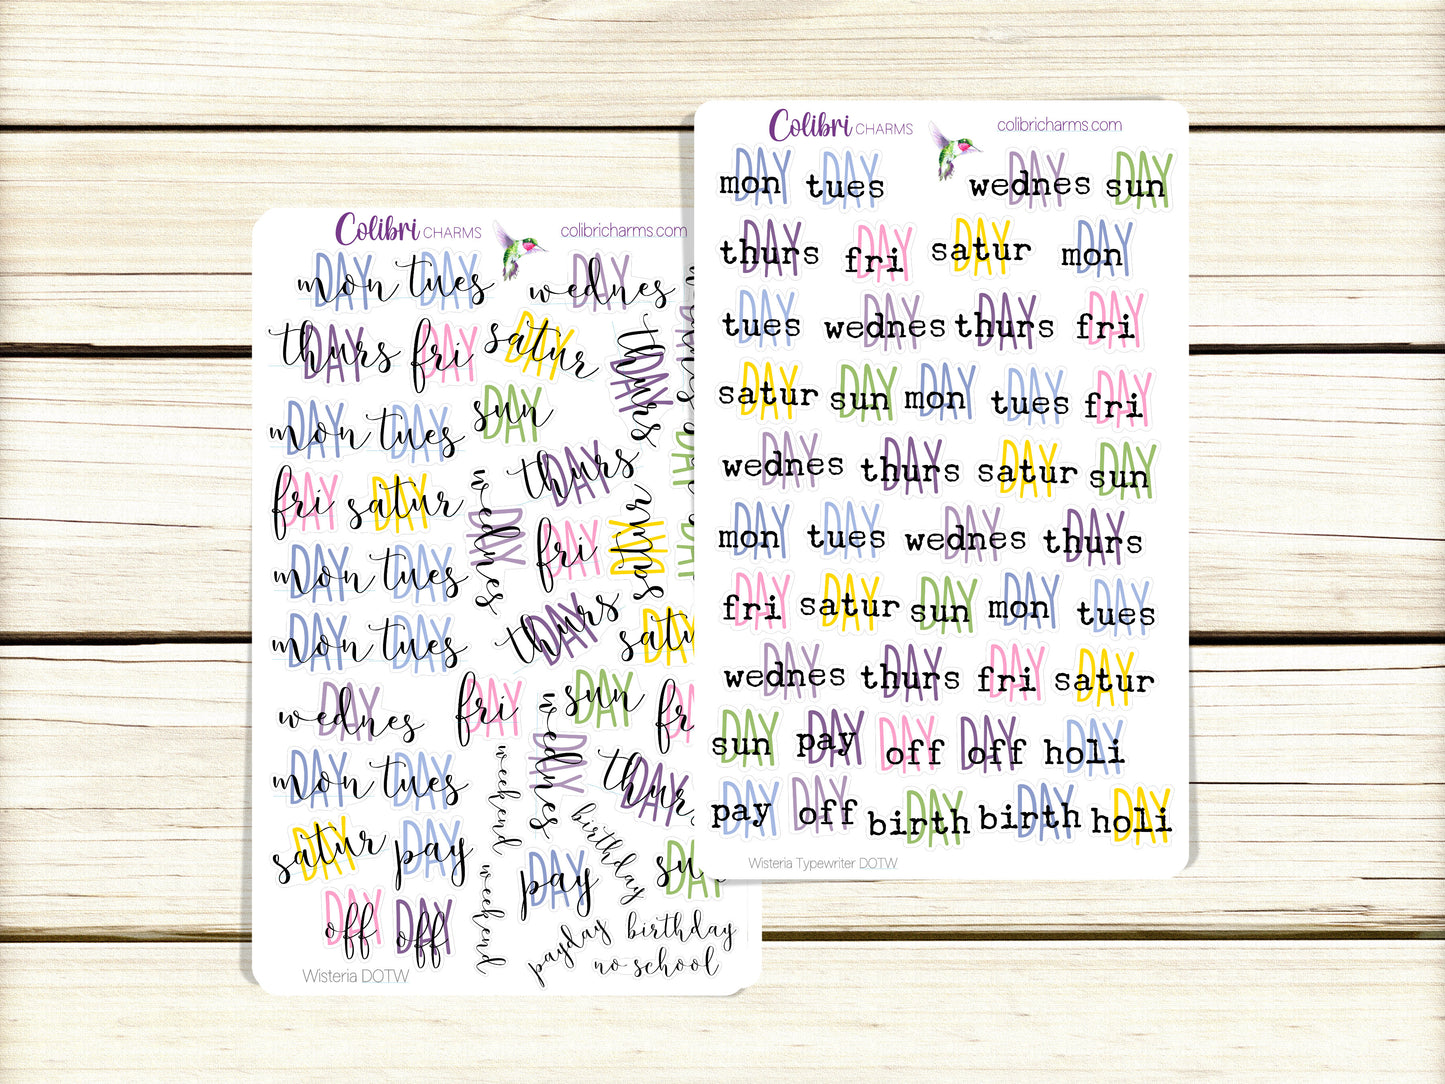 Colibri CHARMS colibricharms.com
monDAY tuesDAY wednesDAY
thursDAY friDAY saturDAY thursDAY
monDAY tuesDAY sunDAY
friDAY saturDAY wednesDAY thursDAY
monDAY tuesDAY friDAY saturDAY
monDAY tuesDAY thursDAY satu DAY
wednesDAY friDAY sunDAY fr
monDAY tuesDAY weekend wednesDAY thursDAY
saturDAY payDAY weekend payDAY birthday suDAY
offDAY offDAY payday birthday
no school
Wisteria DOTW
Colibri CHARMS colibricharms.com
monDAY tuesDAY wednesDAY sunDAY
thursDAY friDAY saturDAY monDAY
tuesDAY wednesDAY thursDAY friDAY
saturDAY sunDAY monDAY tuesDAY friDAY
wednesDAY thursDAY saturDAY sunDAY
monDAY tuesDAY wednesDAY thursDAY
friDAY saturDAY sunDAY monDAY tuesDAY
wednesDAY thursDAY friDAY saturDAY
sunDAY payDAY offDAY offDAY holiDAY
payDAY offDAY birthDAY birthDAY holiDAY
Wisteria Typewriter DOTW